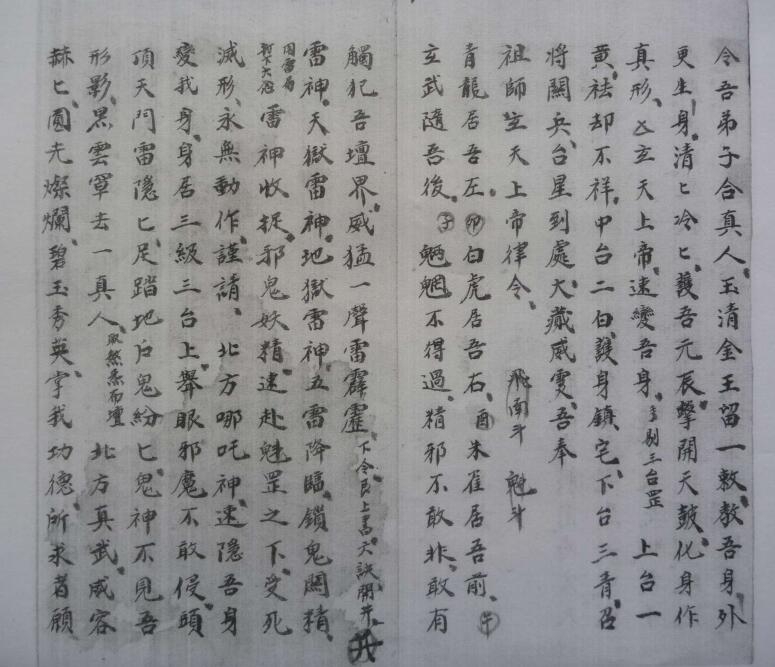 令吾弟子合真人玉清金王留一敕敕吾身外
更生身清匕冷匕護吾元辰擊開天鼓化身作
真形立天上帝速變吾身步别三台罡上台一
黄袪却不祥中台二白護身鎮宅下台三青召
將關兵台星到處大藏威灵吾奉
祖師玄天上帝律令 飛南斗 魁斗
青龍居吾左卯白虎居吾右酉朱雀居吾前午
玄武隨吾後子魍魎不得過精邪不敢非敢有
觸犯吾壇界威猛一聲雷霹靂下令艮上書天訣開井
雷神天獄雷神地獄雷神五雷降臨鎖鬼関精
雷神收捉邪鬼妖精速赴魁罡之下受死
滅形永無動作謹請北方哪吒神速隱吾身
變我身身居三級三台上舉眼邪魔不敢侵頭
頂天門雷隱匕足踏地户鬼紛匕鬼神不見吾
形影黑雲罩去一真人取然香而壇北方真武威容
赫匕圓光燦爛碧玉秀英掌我功德所求者願